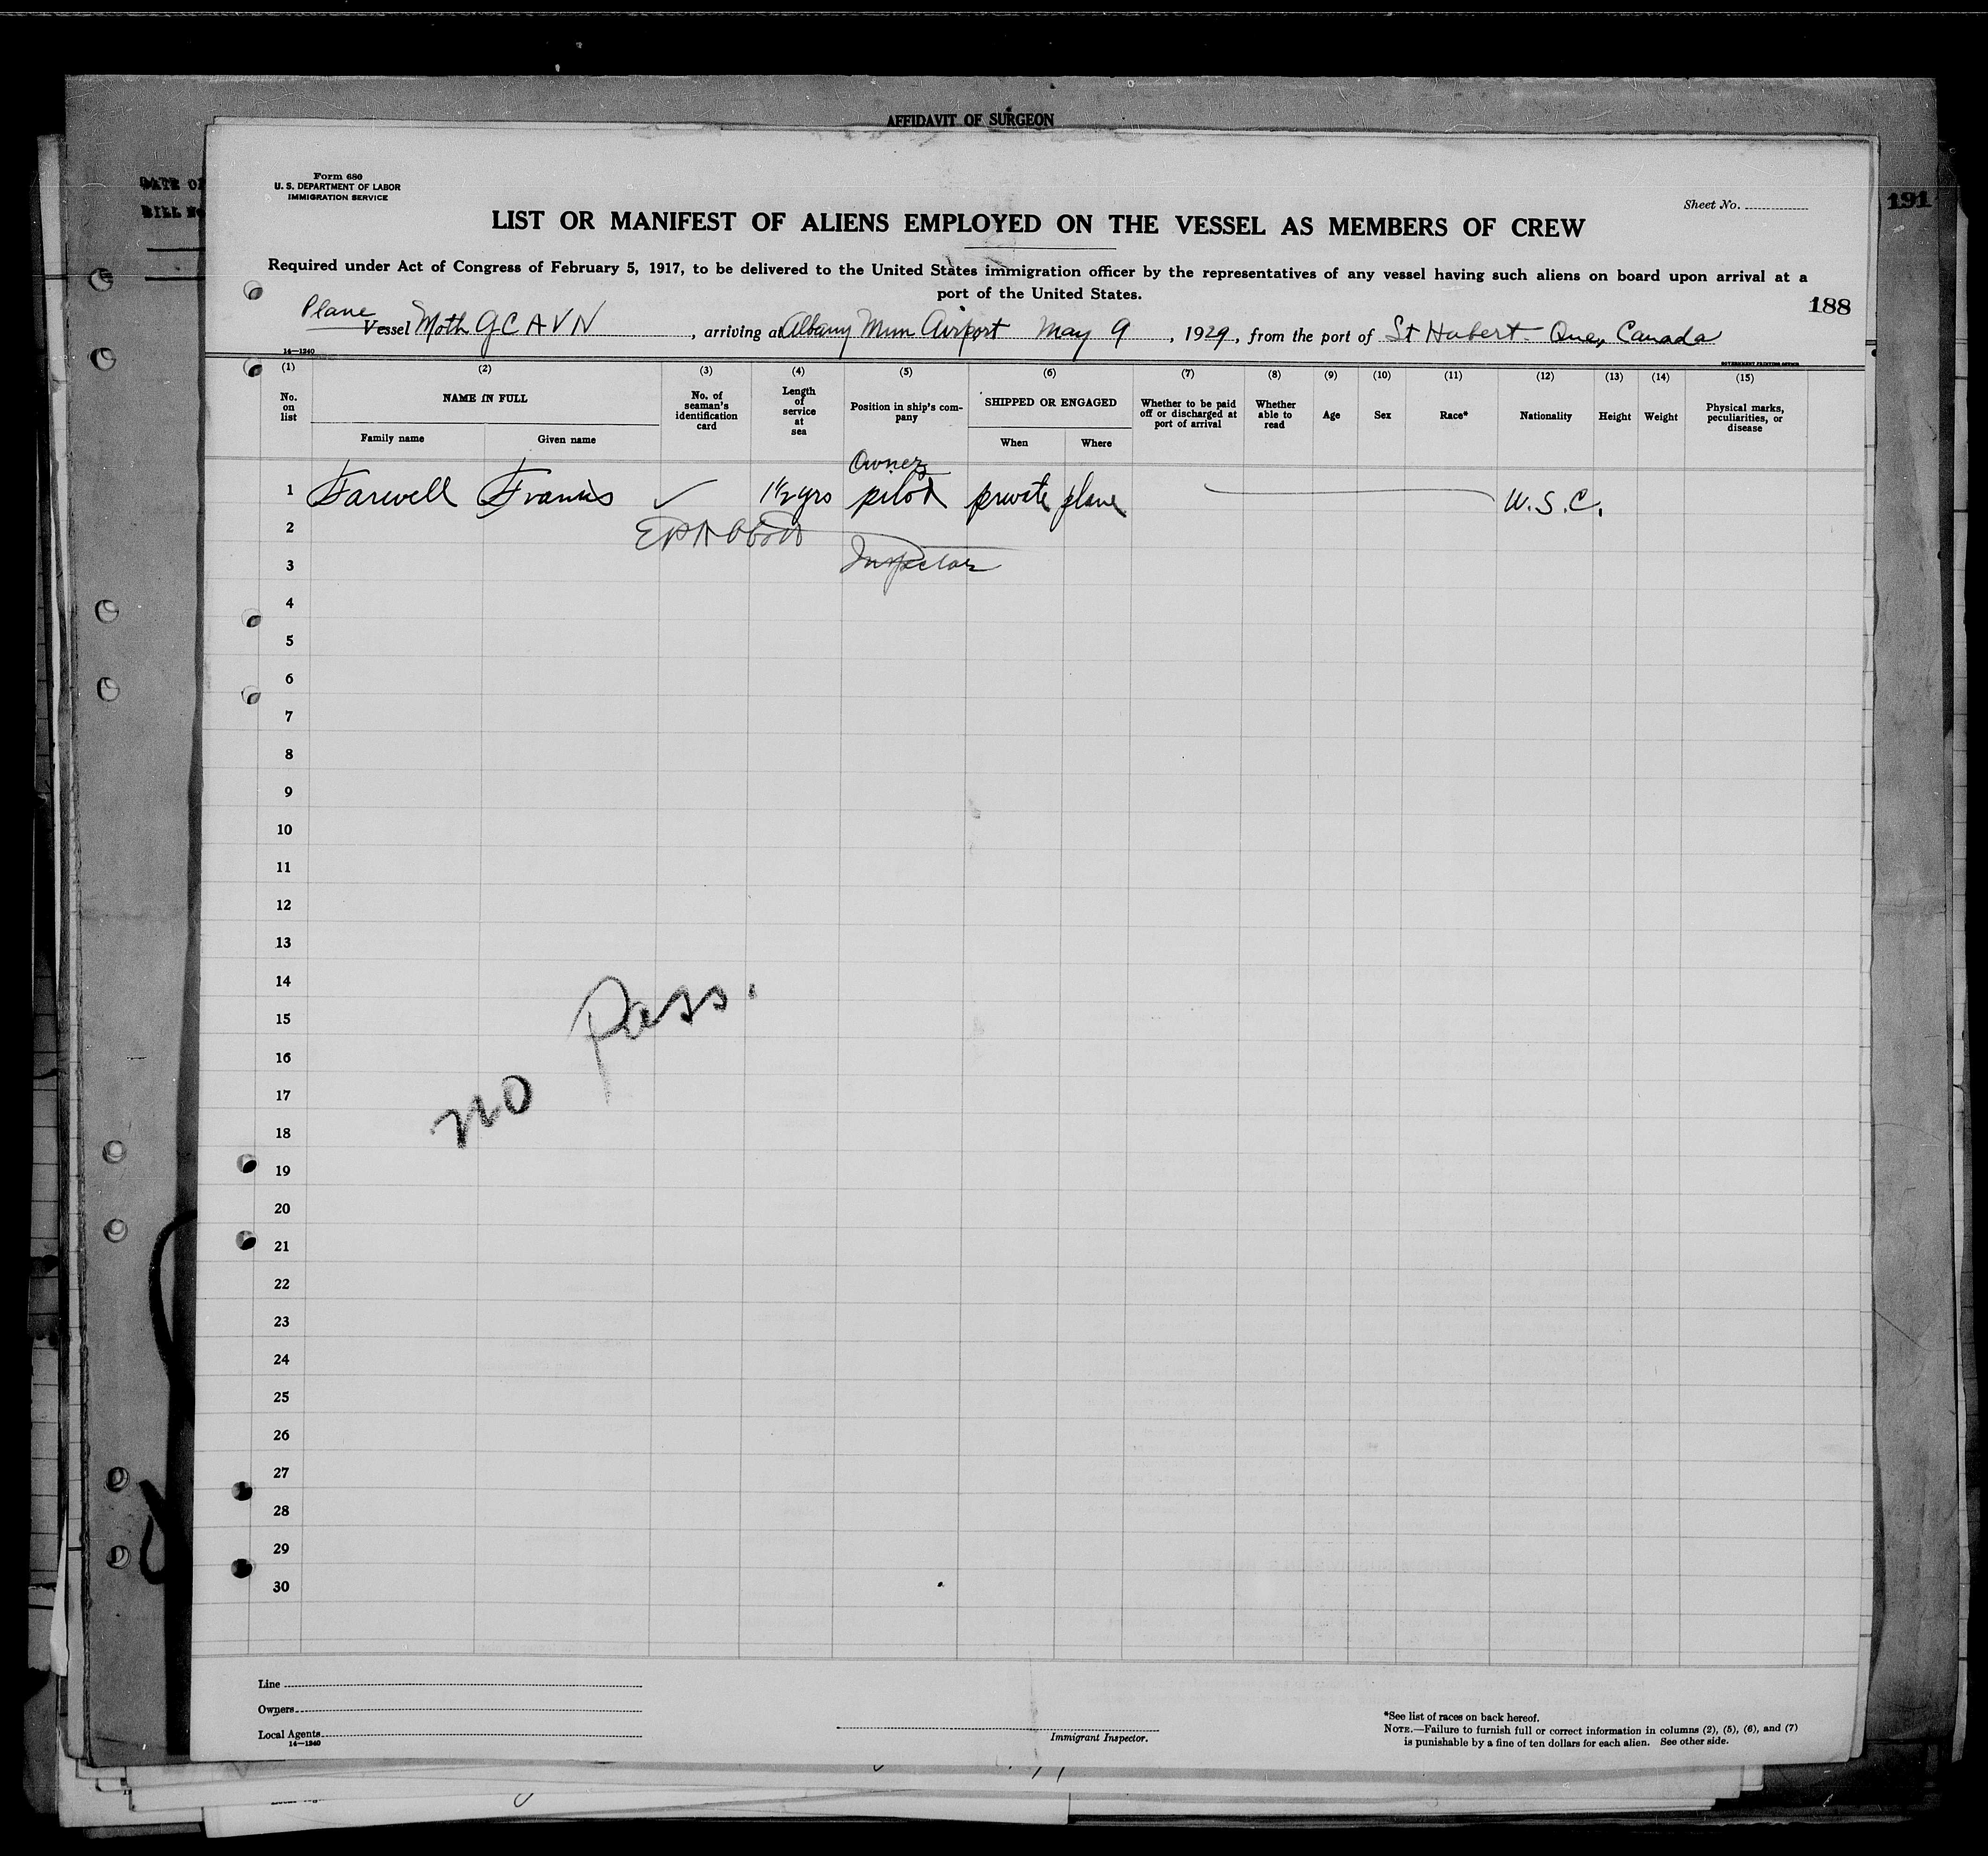 AFFIDAVIT OF SURGEON
191
DATE OF
BILL No
Form 680
U. S. DEPARTMENT OF LABOR
IMMIGRATION SERVICE
Sheet No.
LIST OR MANIFEST OF ALIENS EMPLOYED ON THE VESSEL AS MEMBERS OF CREW
Required under Act of Congress of February 5, 1917, to be delivered to the United States immigration officer by the representatives of any vessel having such aliens on board upon arrival at a
port of the United States.
188
Plane
Vessel Moth G C A V N, arriving at Albany Mun Airport May 9, 1929, from the port of St Hubert - Que, Canada
14—1240
GOVERNMENT PRINTING OFFICE
(1) (2) (3) (4) (5) (6) (7) (8) (9) (10) (11) (12) (13) (14) (15)
No. on list
NAME IN FULL
Family name
Given name
No. of seaman's identification card
Length of service at sea
Position in ship's company
SHIPPED OR ENGAGED
When
Where
Whether to be paid off or discharged at port of arrival
Whether able to read
Age
Sex
Race*
Nationality
Height
Weight
Physical marks, peculiarities, or disease
Owner
1 Farwell Francis ✓ 1 1/2 yrs pilot private plane W. S. C.
2 Abbott
3 Inspector
4
5
6
7
8
9
10
11
12
13
14
15
16
17
18
19
20
21
22
23
24
25
26
27
28
29
30
no Pass.
Line
Owners
Local Agents
14—1240
Immigrant Inspector.
*See list of races on back hereof.
NOTE.—Failure to furnish full or correct information in columns (2), (5), (6), and (7)
is punishable by a fine of ten dollars for each alien. See other side.